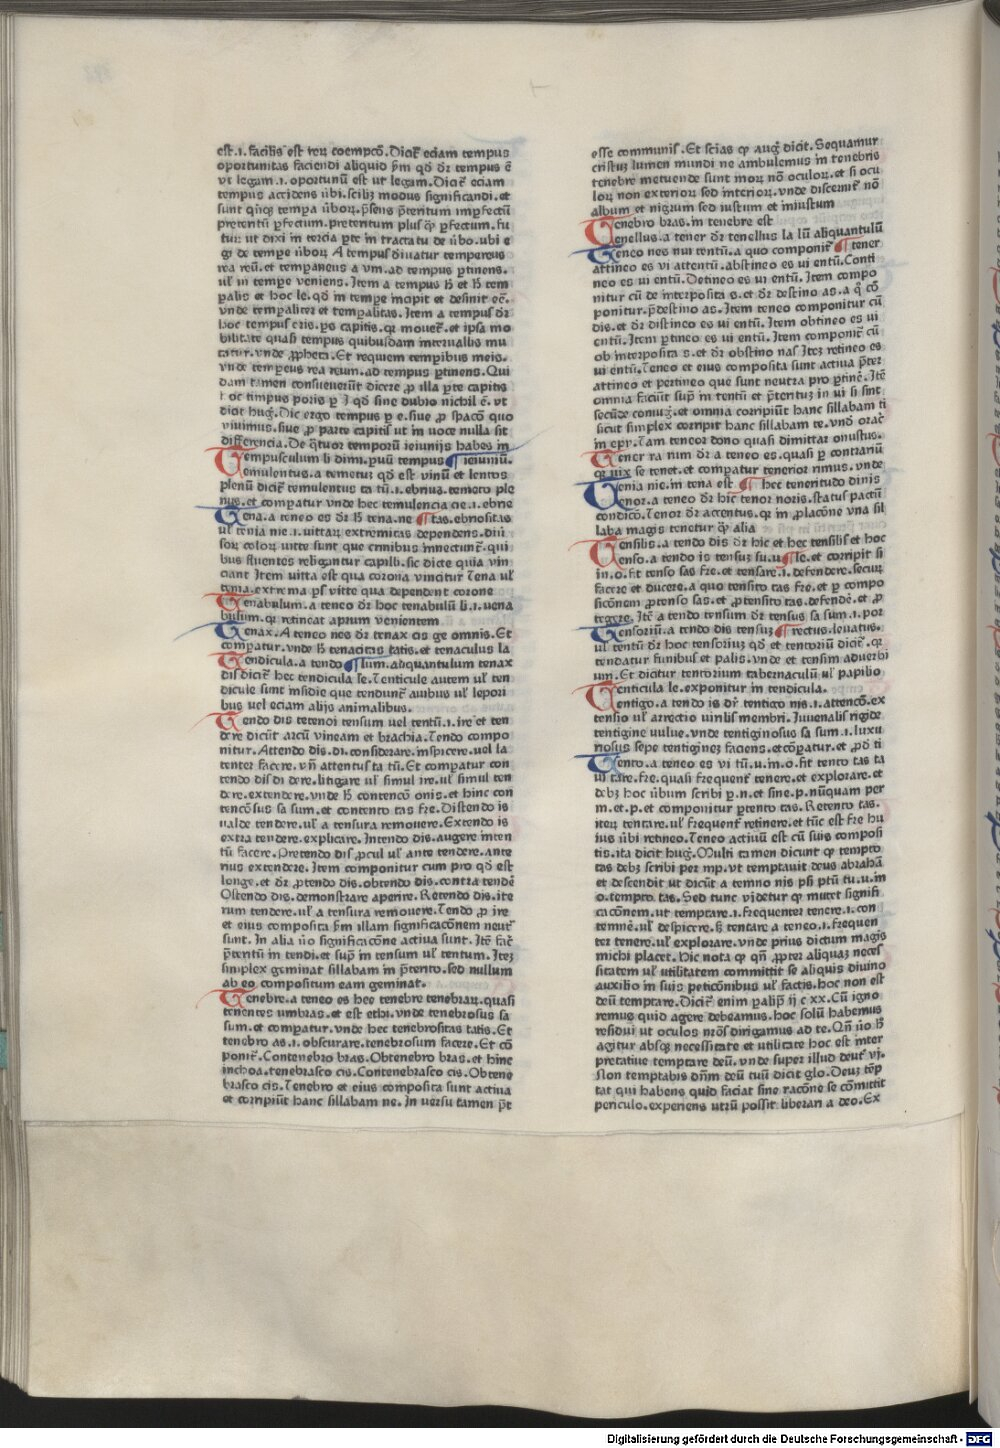 est.i.facilis est reꝝ coempcō.Dicit̄ eciam tempus
oportunitas faciendi aliquid ẜm qd̄ dr̄ tempus ē
vt legam.i.oportunū est ut legam.Dicit̄ eciam
tempus accidens ūbi.scilꝫ modus significandi.et
sunt qͥnqꝫ tempa ūboꝝ.p̄sens p̄teritum imꝑfectū
preteritū ꝑfectum.preteritum plus qͣ ꝑfectum.fu
tuꝝ ut dixi in tercia ꝑte in tractatu de ūbo.ubi e
gi de tempe ūboꝝ A tempus diuatur tempereus
rea reū.et tempaneus a vm.ad tempus ꝑtinens.
ul̄ in tempe veniens.Item a tempus h̄ et h̄ tem
palis et hoc le.qd̄ in tempe incipit et desinit eē.
vnde tempaliter et tempalitas.Item a tempus dr̄
hoc tempus eris.ꝑs capitis.qꝛ mouet̄.et ipsa mo
bilitate quasi tempus quibusdam interuallis mu
tatur.vnde ꝓpheta.Et requiem tempibus meis.
vnde tempeus rea reum.ad tempus ꝑtinens.Qui
dam tamen consueuerūt dicere ꝓ illa ꝑte capitis
hoc timpus poris ꝑ I qd̄ sine dubio nichil ē.vt
dicit hug.Dic ergo tempus ꝑ e.siue ꝓ spacō quo
viuimus.siue ꝓ parte capitis ut in uoce nulla sit
differencia.De qͣtuor temporū ieiunijs habes in
Tempusculum li dimi.ꝑuū tempus ¶ ieiuniū.
Temulentus.a temetuꝫ qd̄ est vinū et lentos
plenū dicit̄ temulentus ta tū.i.ebrius.temeto ple
nus.et compatur vnde hec temulencia cie.i.ebrie
Tena.a teneo es dr̄ h̄ tena.ne ¶ tas.ebriositas
ul̄ tenia nie.i.uittaꝝ extremitas dependens.diū
soꝝ coloꝝ uitte sunt que crinibus innectunt̄.qui
bus fluentes religantur capilli.sic dicte quia vin
ciant Item uitta est qua corona vincitur Tena ul̄
tenia.extrema ꝑs vitte qua dependent corone
Tenabulum.a teneo dr̄ hoc tenabulū li.i.uena
bulum.qꝛ retineat aprum venientem
Tenax.A teneo nes dr̄ tenax cis ge omnis.Et
compatur.vnde h̄ tenacitas tatis.et tenaculus la
Tendicula.a tendo ¶ lum.aliquantulum tenax
dis dicit̄ hec tendicula le.Tenticule autem ul̄ ten
dicule sunt insidie que tendunt̄ auibus ul̄ lepori
bus uel eciam alijs animalibus.
Tendo dis tetendi tensum uel tentū.i.ire et ten
dere dicūt arcū vineam et brachia.Tendo compo
nitur.Attendo dis.di.considerare.inspicere.uel la
tenter facere.vn̄ attentus ta tū.Et compatur con
tendo dis di dere.litigare ul̄ simul ire.ul̄ simul ten
dere.extendere.vnde h̄ contencō onis.et hinc con
tencōsus sa sum.et contento tas are.Distendo is
ualde tendere.ul̄ a tensura remouere.Extendo is
extra tendere.explicare.Intendo dis.augere inten
tū facere.Pretendo dis ꝓcul ul̄ ante tendere.ante
rius extendere.Item componitur cum pro qd̄ est
longe.et dr̄ ꝓtendo dis.obtendo dis.contra tendē
Ostendo dis.demonstrare aperire.Retendo dis.ite
rum tendere.ul̄ a tensura remouere.Tendo ꝓ ire
et eius composita ẜm illam significacōnem neut̄
sunt.In alia ūo significacōne actiua sunt.Itē fac̄
p̄teritū in tendi.et sup̄ in tensum ul̄ tentum.Iteꝫ
simplex geminat sillabam in p̄terito.sed nullum
ab eo compositum eam geminat.
Tenebre.a teneo es hec tenebre tenebraꝝ.quasi
tenentes umbras.et est ethi.vnde tenebrosus sa
sum.et compatur.vnde hec tenebrositas tatis.Et
tenebro as.i.obscurare.tenebrosum facere.Et cō
ponit̄.Contenebro bras.Obtenebro bras.et hinc
inchoa.tenebrasco cis.Contenebrasco cis.Obtene
brasco cis.Tenebro et eius composita sunt actiua
et corripiūt hanc sillabam ne.In uersu tamen pt̄
esse communis.Et scias ꝙ aug dicit.Sequamur
cristuꝫ lumen mundi ne ambulemus in tenebris
tenebre metuende sunt moꝝ nō oculoꝝ.et si ocu
loꝝ non exterioꝝ sed interioꝝ.vnde discernit̄ nō
album et nigrum sed iustum et iniustum
Tenebro bras.in tenebre est
Tenellus.a tener dr̄ tenellus la lū aliquantulū
Teneo nes nui tentū.a quo componit̄ ¶ tener
attineo es vi attentū.abstineo es ui entū.Conti
neo es ui entū.Detineo es ui entū.Item compo
nitur cū de interposita s.et dr̄ destino as.a qͦ cō
ponitur.p̄destino as.Item teneo componitur cū
dis.et dr̄ distineo es ui entū.Item obtineo es ui
entū.Item ꝑtineo es ui entū.Item componit̄ cū
ob interposita s.et dr̄ obstino nas Iteꝫ retineo es
ui entū.Teneo et eius composita sunt actiua p̄ter
attineo et pertineo que sunt neutra pro ꝑtinē.Itē
omnia faciūt sup̄ in tentū et p̄teritū in ui si sint
secūde coniuḡ.et omnia corripiūt hanc sillabam ti
sicut simplex corripit hanc sillabam te.vnd̄ orac̄
in epr.Tam teneor dono quasi dimittar onustus.
Tener ra rum dr̄ a teneo es.quasi ꝑ contrariū
qꝛ uix se tenet.et compatur tenerior rimus.vnde
Tenia nie.in tena est ¶ hec teneritudo dinis
Tenor.a teneo dr̄ hic tenor noris.status pactū
condicō.Tenor dr̄ accentus.qꝛ in ꝓlacōne vna sil
laba magis tenetur qͣ alia
Tensilis.a tendo dis dr̄ hic et hec tensilis et hoc
Tenso.a tendo is tensuꝫ su.u ¶ le.et corripit si
in.o.fit tenso sas are.et tensare.i.defendere.securꝫ
facere et ducere.a quo tensito tas are.et ꝑ compo
sicōnem ꝓtenso sas.et ꝓtensito tas.defendē.et ꝓ
tegere.Itē a tendo tensum dr̄ tensus sa sum.i.por
Tensoriū.a tendo dis tensuꝫ ¶ rectus.leuatus.
ul̄ tentū dr̄ hoc tensoriuꝫ qd̄ et tentoriū dicit̄.qꝛ
tendatur funibus et palis.vnde et tensim aduerbi
um.Et dicitur tentorium tabernaculū ul̄ papilio
Tenticula le.exponitur in tendicula.
Tentigo.a tendo is dr̄ tentigo nis.i.attencō.ex
tensio ul̄ arrectio uirilis membri.Iuuenalis rigide
tentigine uulue.vnde tentiginosus sa sum.i.luxu
riosus sepe tentigineꝫ faciens.et cōꝑatur.et ꝓd̄ ti
Tento.a teneo es vi tū.u.in.o.fit tento tas ta
ui tare.are.quasi frequent̄ tenere.et explorare.et
debꝫ hoc ūbum scribi ꝑ.n.et sine.p.nūquam per
m.et.p.et componitur ꝑtento tas.Retento tas.
iteꝝ tentare.ul̄ frequent̄ retinere.et tūc est are hu
ius ūbi retineo.Teneo actiuū est cū suis composi
tis.ita dicit hug.Multi tamen dicunt ꝙ tempto
tas debꝫ scribi per mp.vt temptauit deus abrahā
et descendit ut dicūt a temno nis psi ptū tu.u.in
o.tempto tas.Sed tunc videtur ꝙ mutet signifi
cacōnem.ut temptare.i.frequenter tenere.i.con
temnē.ul̄ despicere.ẜ tentare a teneo.i.frequen
ter tenere.ul̄ explorare.vnde prius dictum magis
michi placet.Hic nota ꝙ qn̄ ꝓpter aliquaꝫ neces
sitatem ul̄ utilitatem committit se aliquis diuino
auxilio in suis peticōnibus ul̄ factis.hoc non est
deū temptare.Dicit̄ enim ꝑalip̄ ij c xx.Cū igno
remus quid agere debeamus.hoc solū habemus
residui ut oculos nrōs dirigamus ad te.Qn̄ ūo h̄
agitur absqꝫ necessitate et utilitate hoc est inter
pretatiue temptare deū.vnde super illud deut̄ vj.
Non temptabis dn̄m deū tuū dicit glo.Deuꝫ tēp
tat qui habens quid faciat sine racōne se cōmittit
periculo.experiens utrū possit liberari a deo.Ex
Digitalisierung gefördert durch die Deutsche Forschungsgemeinschaft - DFG